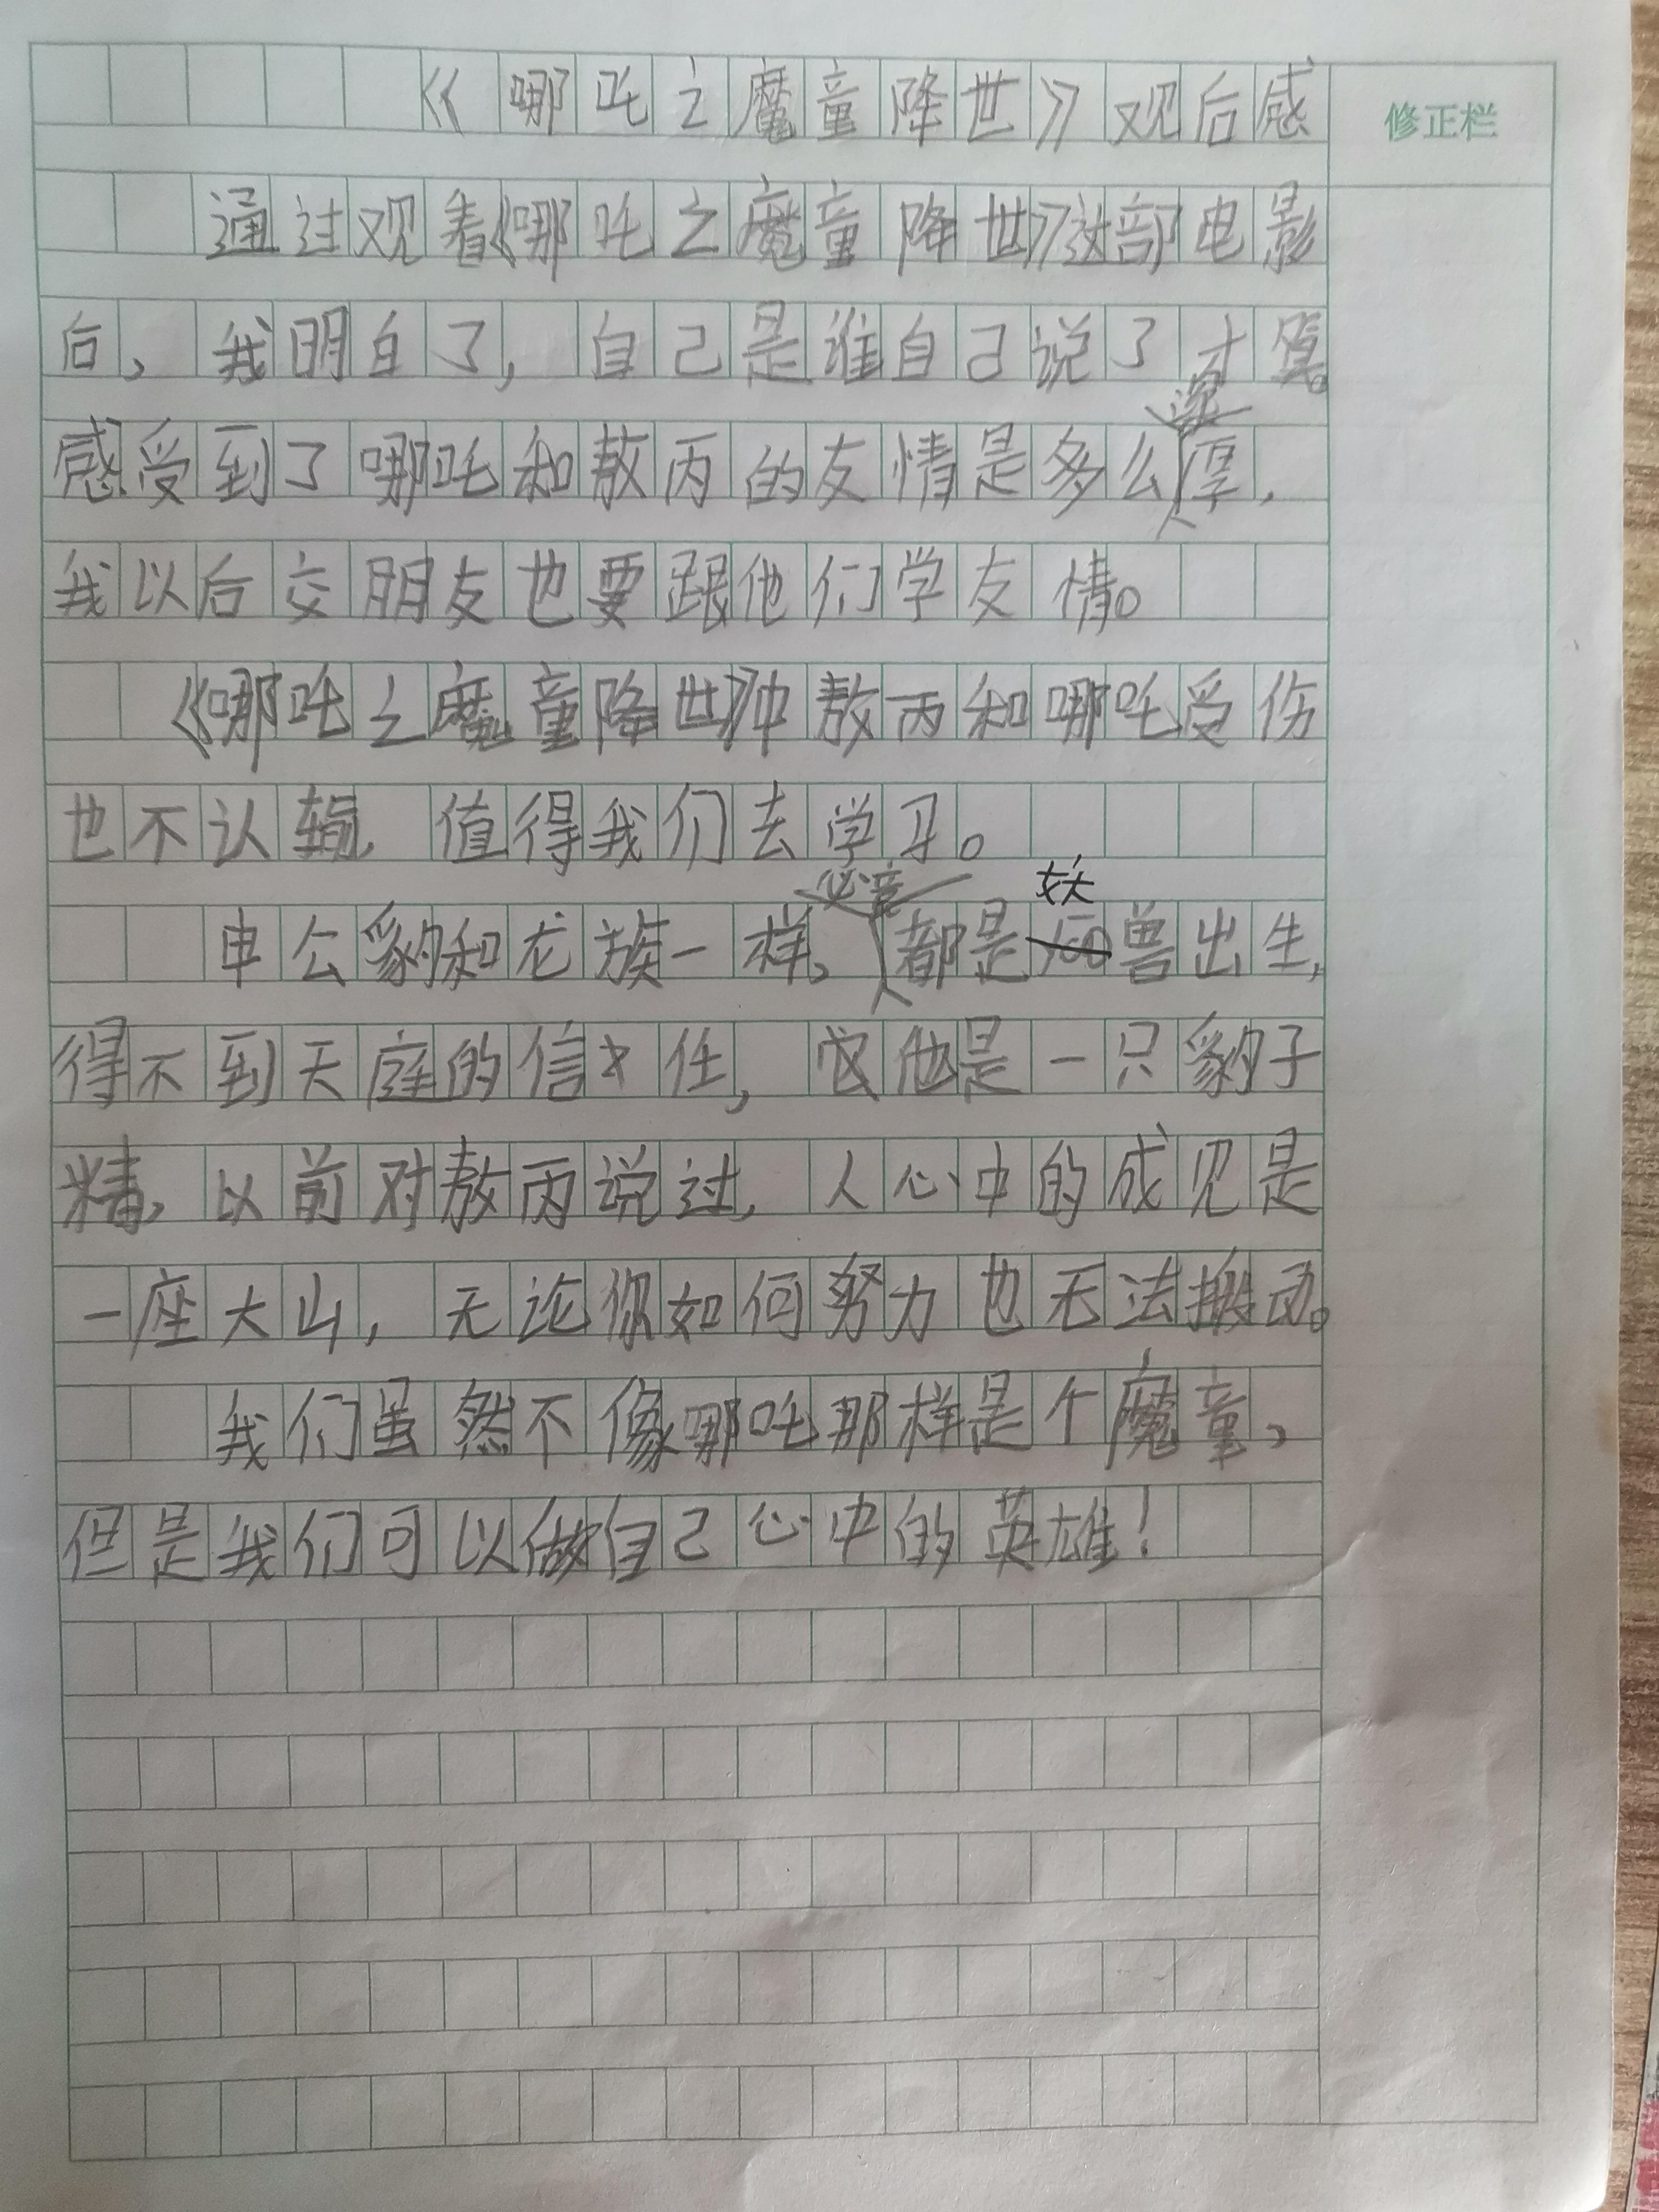 《哪吒之魔童降世》观后感
修正栏
通过观看《哪吒之魔童降世》这部电影
后，我明白了，自己是谁自己说了才算。
感受到了哪吒和敖丙的友情是多么深厚，
我以后交朋友也要跟他们学友情。
《哪吒之魔童降世》中敖丙和哪吒受伤
也不认输，值得我们去学习。
申公豹和龙族一样，必竟都是妖兽出生，
得不到天庭的信任，他是一只豹子
精，以前对敖丙说过，人心中的成见是
一座大山，无论你如何努力也无法搬动。
我们虽然不像哪吒那样是个魔童，
但是我们可以做自己心中的英雄！